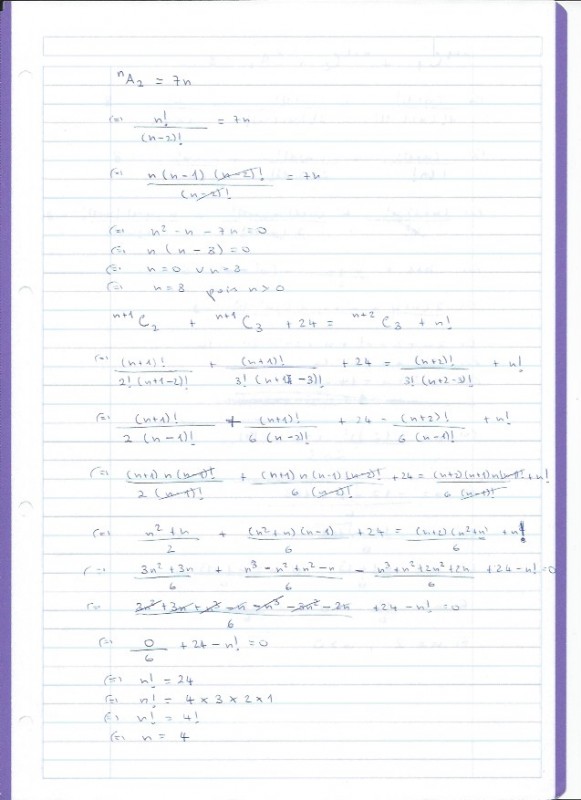 ⁿA₂ = 7n
⇔ n! / (n-2)! = 7n
⇔ n(n-1) (n-2)! / (n-2)! = 7n
⇔ n² - n - 7n = 0
⇔ n (n - 8) = 0
⇔ n = 0 ∨ n = 8
⇔ n = 8 pois n > 0
ⁿ⁺¹C₂ + ⁿ⁺¹C₃ + 24 = ⁿ⁺²C₃ + n!
⇔ (n+1)! / 2! (n+1-2)! + (n+1)! / 3! (n+1-3)! + 24 = (n+2)! / 3! (n+2-3)! + n!
⇔ (n+1)! / 2 (n-1)! + (n+1)! / 6 (n-2)! + 24 - (n+2)! / 6 (n-1)! + n!
⇔ (n+1) n (n-1)! / 2 (n-1)! + (n+1) n (n-1) (n-2)! / 6 (n-1)! + 24 = (n+2)(n+1)n(n-1)! / 6 (n-1)! + n!
⇔ n² + n / 2 + (n²+n)(n-1) / 6 + 24 = (n+2)(n²+n) / 6 + n!
⇔ 3n² + 3n / 6 + n³ - n² + n² - n / 6 - n³ + n² + 2n² + 2n / 6 + 24 - n! = 0
⇔ 3n² + 3n + n³ - n - n³ - 3n² - 2n / 6 + 24 - n! = 0
⇔ 0 / 6 + 24 - n! = 0
⇔ n! = 24
⇔ n! = 4 × 3 × 2 × 1
⇔ n! = 4!
⇔ n = 4